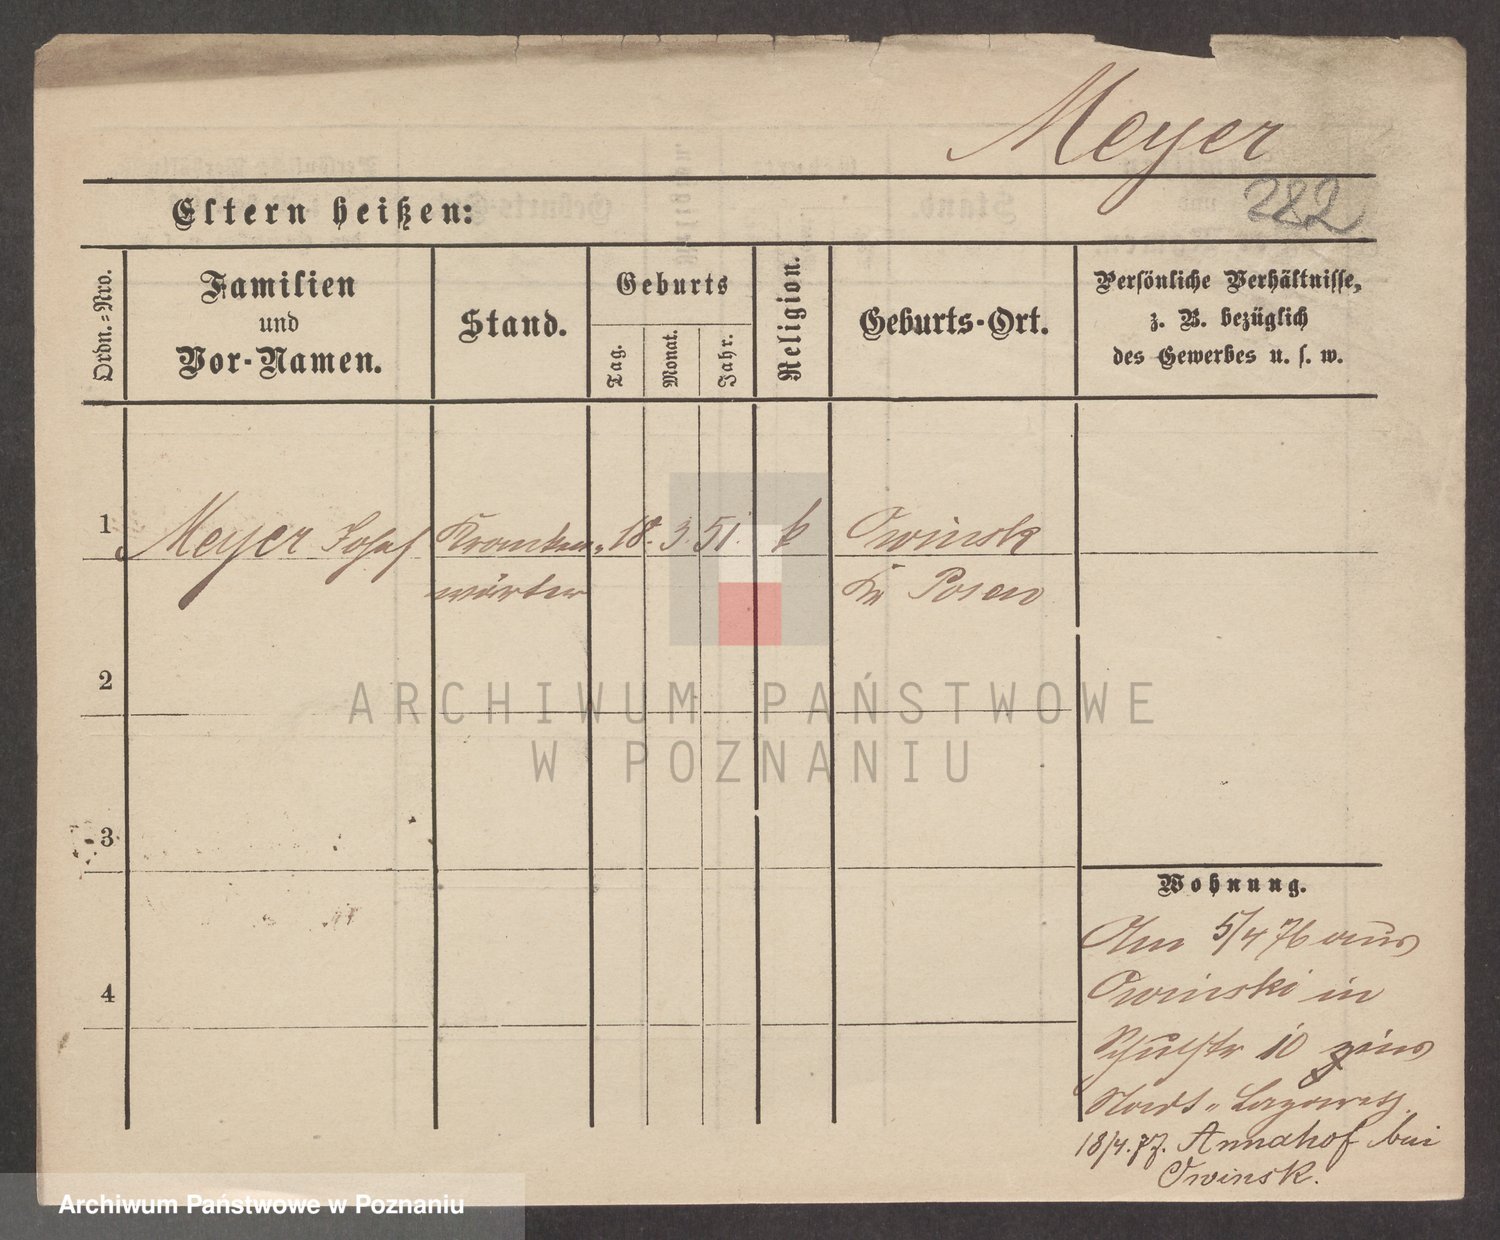 Meyer
282
Eltern heißen:
Ordn.=Nro.
Familien
und
Vor-Namen.
Stand.
Geburts
Tag.
Monat.
Jahr.
Religion.
Geburts-Ort.
Persönliche Verhältnisse,
z. B. bezüglich
des Gewerbes u. s. w.
1
Meyer Josef
Kranken-
wärter
18. 3. 51.
k
Owinsk
Kr Posen
2
ARCHIWUM PAŃSTWOWE
W POZNANIU
3
4
Wohnung.
Am 5/4 76 aus
Owinski in
Schulstr 10
Stadt-Lazareth
18/4.77. Annahof bei
Owinsk.
Archiwum Państwowe w Poznaniu